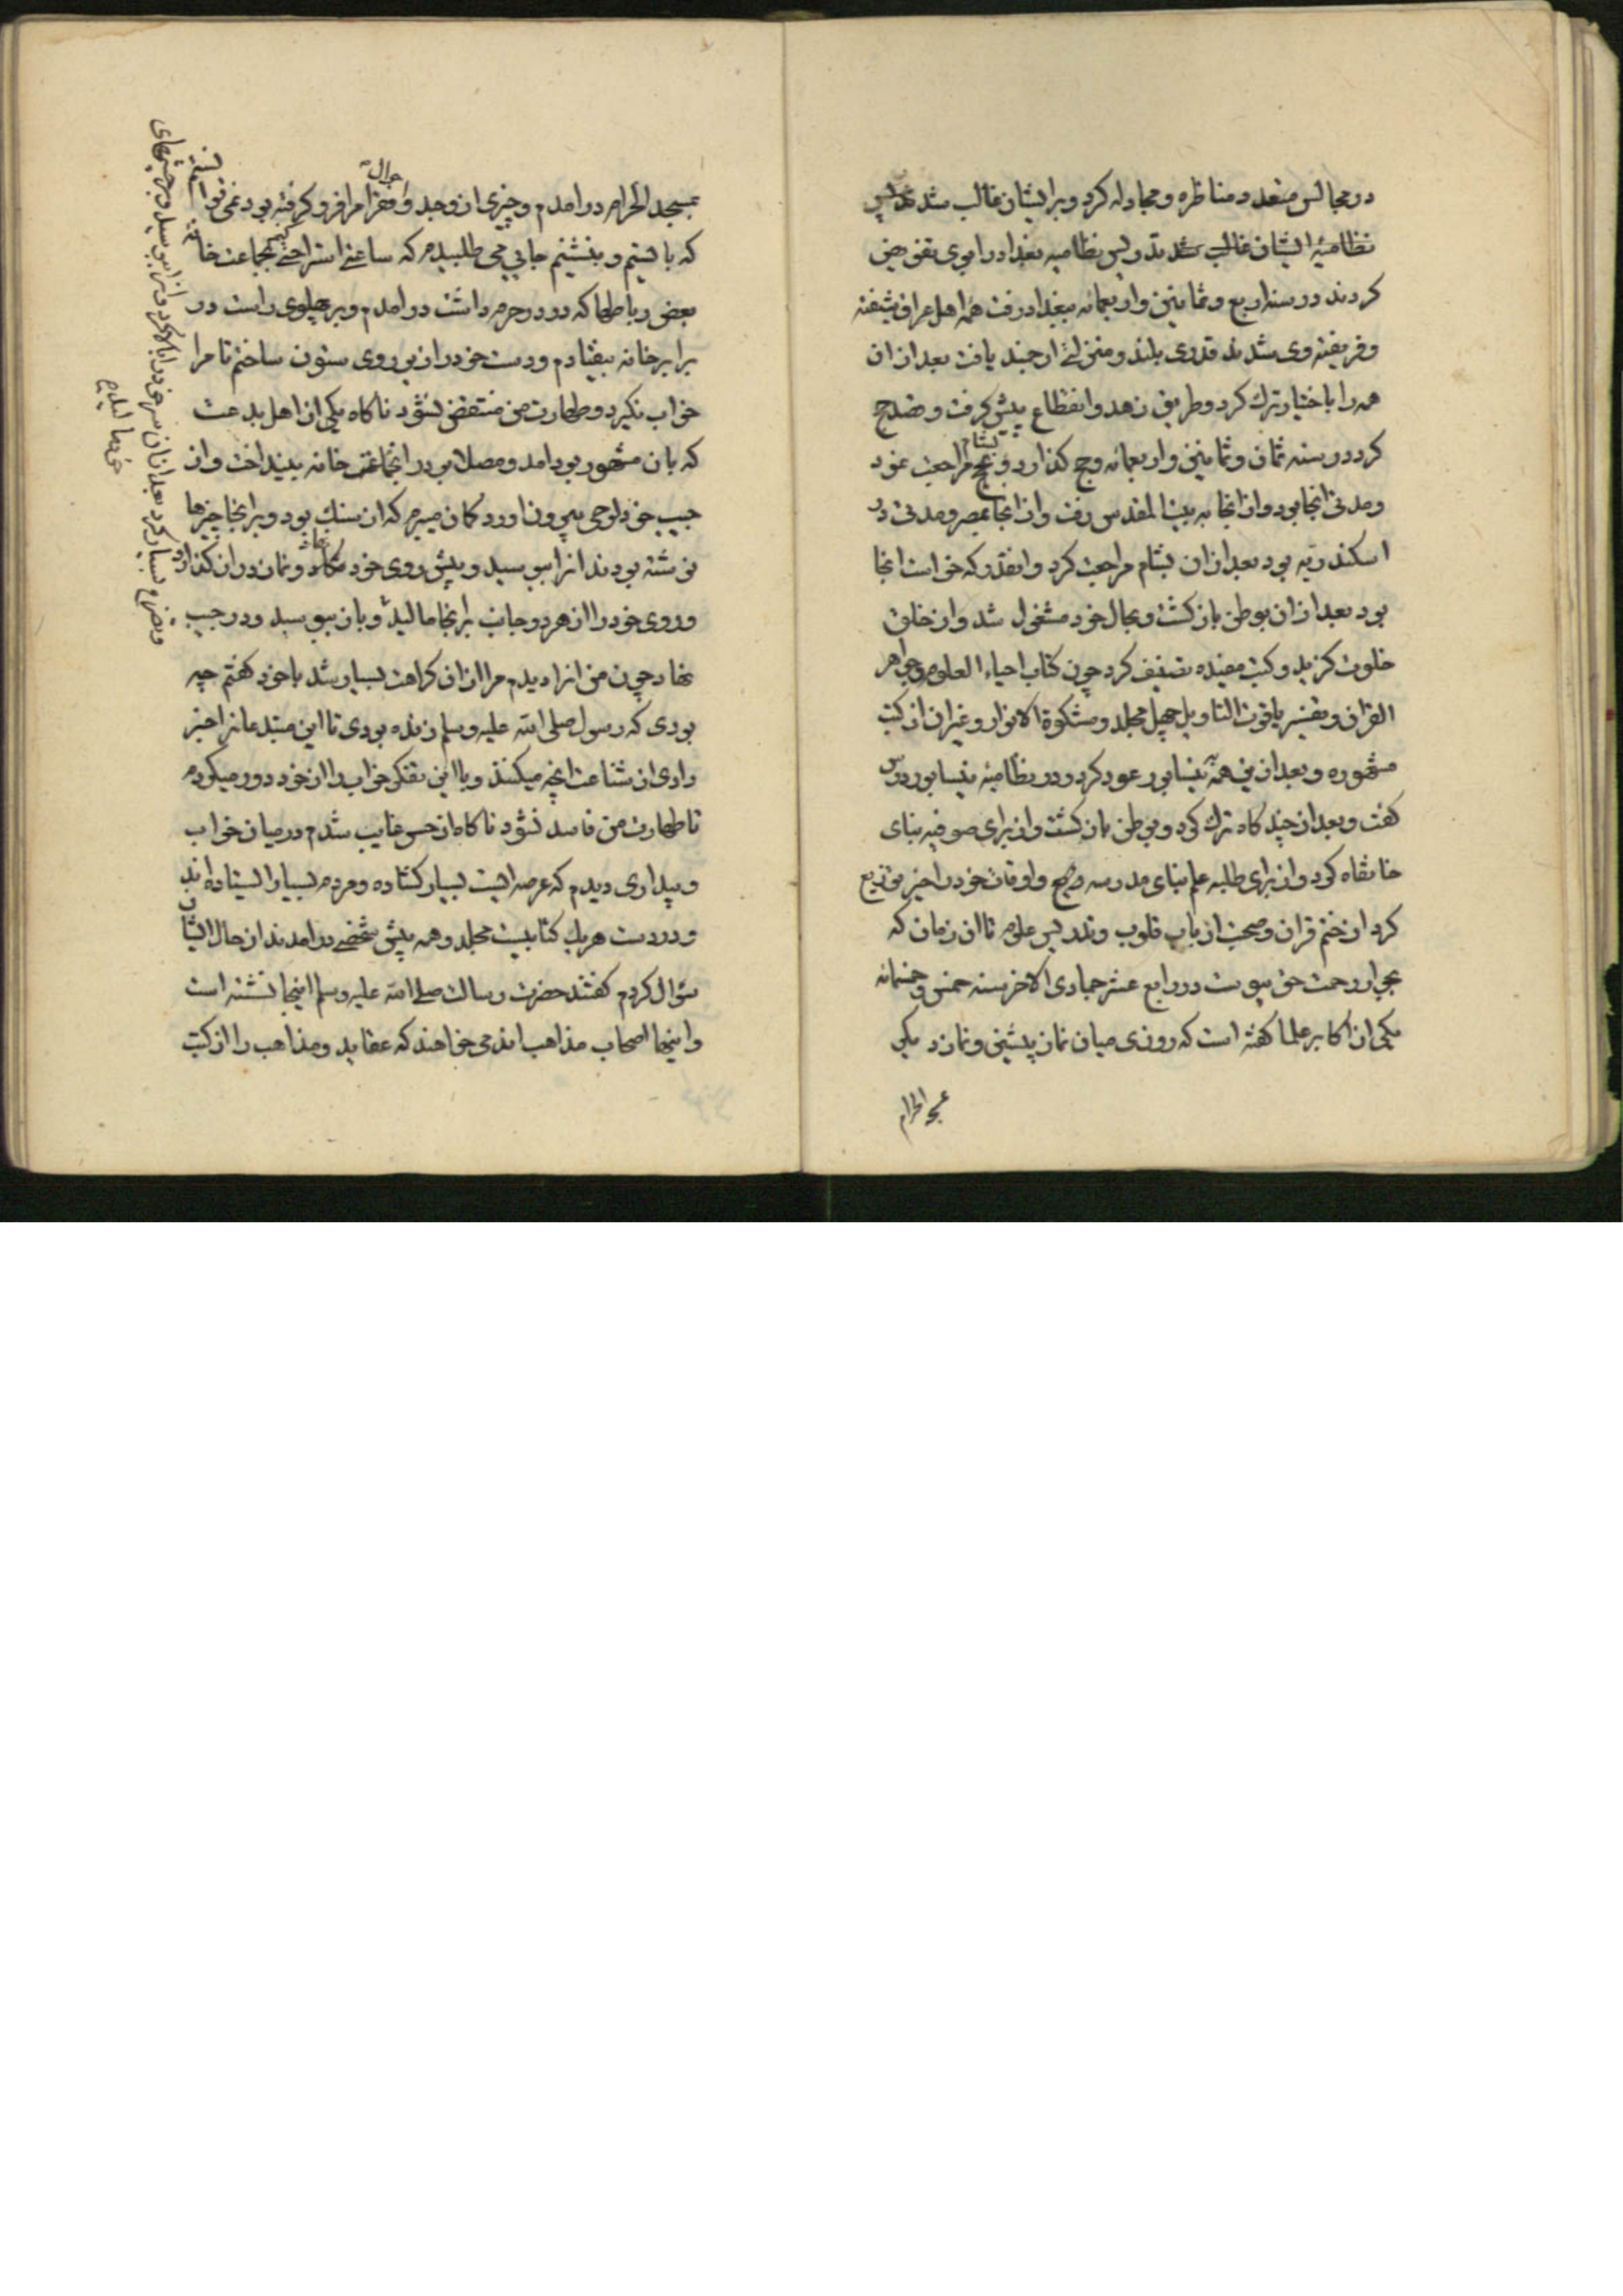 در مجالس متعدد مناظره و مجادله کرد و بر ایشان غالب شد تدریس
نظامیهٔ ایشان غالب شد تدریس نظامیه بغداد را بوی تفویض
کردند در سنه اربع و ثمانین و اربعمائه ببغداد رفت همه اهل عراق شیفته
و فریفته وی شدند قدری بلند و منزلتی ارجمند یافت بعد ازان
همه را باختیار ترک کرد و طریق زهد و انقطاع پیش گرفت و قصد حج
کرد در سنه ثمان و ثمانین و اربعمائه و حج گذارد و بشام مراجعت نمود
و مدتی انجا بود و از انجا به بیت المقدس رفت و از انجا بمصر و مدتی در
اسکندریه بود بعد ازان بشام مراجعت کرد و انقدر که خواست انجا
بود بعد ازان بوطن بازکشت و بحال خود مشغول شد و از خلق
خلوت کزید و کتب مفیده تصنیف کرد چون کتاب احیاء العلوم و جواهر
القران و تفسیر یاقوت التاویل چهل مجلد و مشکوة الانوار و غیر ان از کتب
مشهوره و بعد ازین همه بنیسابور عود کرد و در نظامیه نیسابور درس
کفت و بعد از چند کاه ترک کرد و بوطن بازکشت و از برای صوفیه بنای
خانقاه کرد و از برای طلبه علم بنای مدرسه و اوقات خود را بخیر توزیع
کرد از ختم قران و صحبت ارباب قلوب و تدریس علوم تا ان زمان که
بجوار رحمت حق پیوست در رابع عشر جمادی الاخر سنه خمس و خمسمائه
یکی از اکابر علما کفته است که روزی میان نماز پیشین و نماز دیکر
بمسجد الحرام
بمسجد الحرام درامدم و چیزی از وجد و احوال فقرا مرا فرو کرفته بود نمی توانستم
که بایستم و بنشینم جایی می طلبیدم که ساعتی استراحتی کنم بجماعت خانه
بعضی رباطها که در حرم داشت درامدم و بر پهلوی راست در
برابر خانه بیفتادم و دست خود را زیر روی ستون ساختم تا مرا
خواب نکیرد و طهارت من منتقض نشود ناکاه یکی از اهل بدعت
که بان مشهور بود امد و مصلا بر در انجماعت خانه بینداخت و از
جیب خود لوحی بیرون اورد کمان میبرم که از سنک بود و بر انجا چیزها
نوشته بودند انرا ببوسید و پیش روی خود نهاد و نماز دراز کذارد
و روی خود را از هر دو جانب بر انجا مالید و بان ببوسید و در جیب
نهاد چون من انرا دیدم مرا ازان کراهت بسیار شد با خود کفتم چه
بودی که رسول صلی الله علیه وسلم زنده بودی تا این مبتدعانرا خبر
دادی از شناعت انچه میکنند و با این تفکر خواب را از خود دور میکردم
تا طهارت من فاسد نشود ناکاه از حس غایب شدم در میان خواب
و بیداری دیدم که عرصه ایست بسیار کشاده و مردم بسیار ایستاده اند
و در دست هر یک کتابیست مجلد و همه پیش شخصی درامدند از حال ایشان
سؤال کردم کفتند حضرت رسالت صلی الله علیه وسلم اینجا نشسته است
و اینها اصحاب مذاهب اند می خواهند که عقاید و مذاهب را از کتب
و تضرع بسیار کرد بعد ازان سر خود را بالا کرد و انرا ببوسید و بر چشمهای
خود مالید